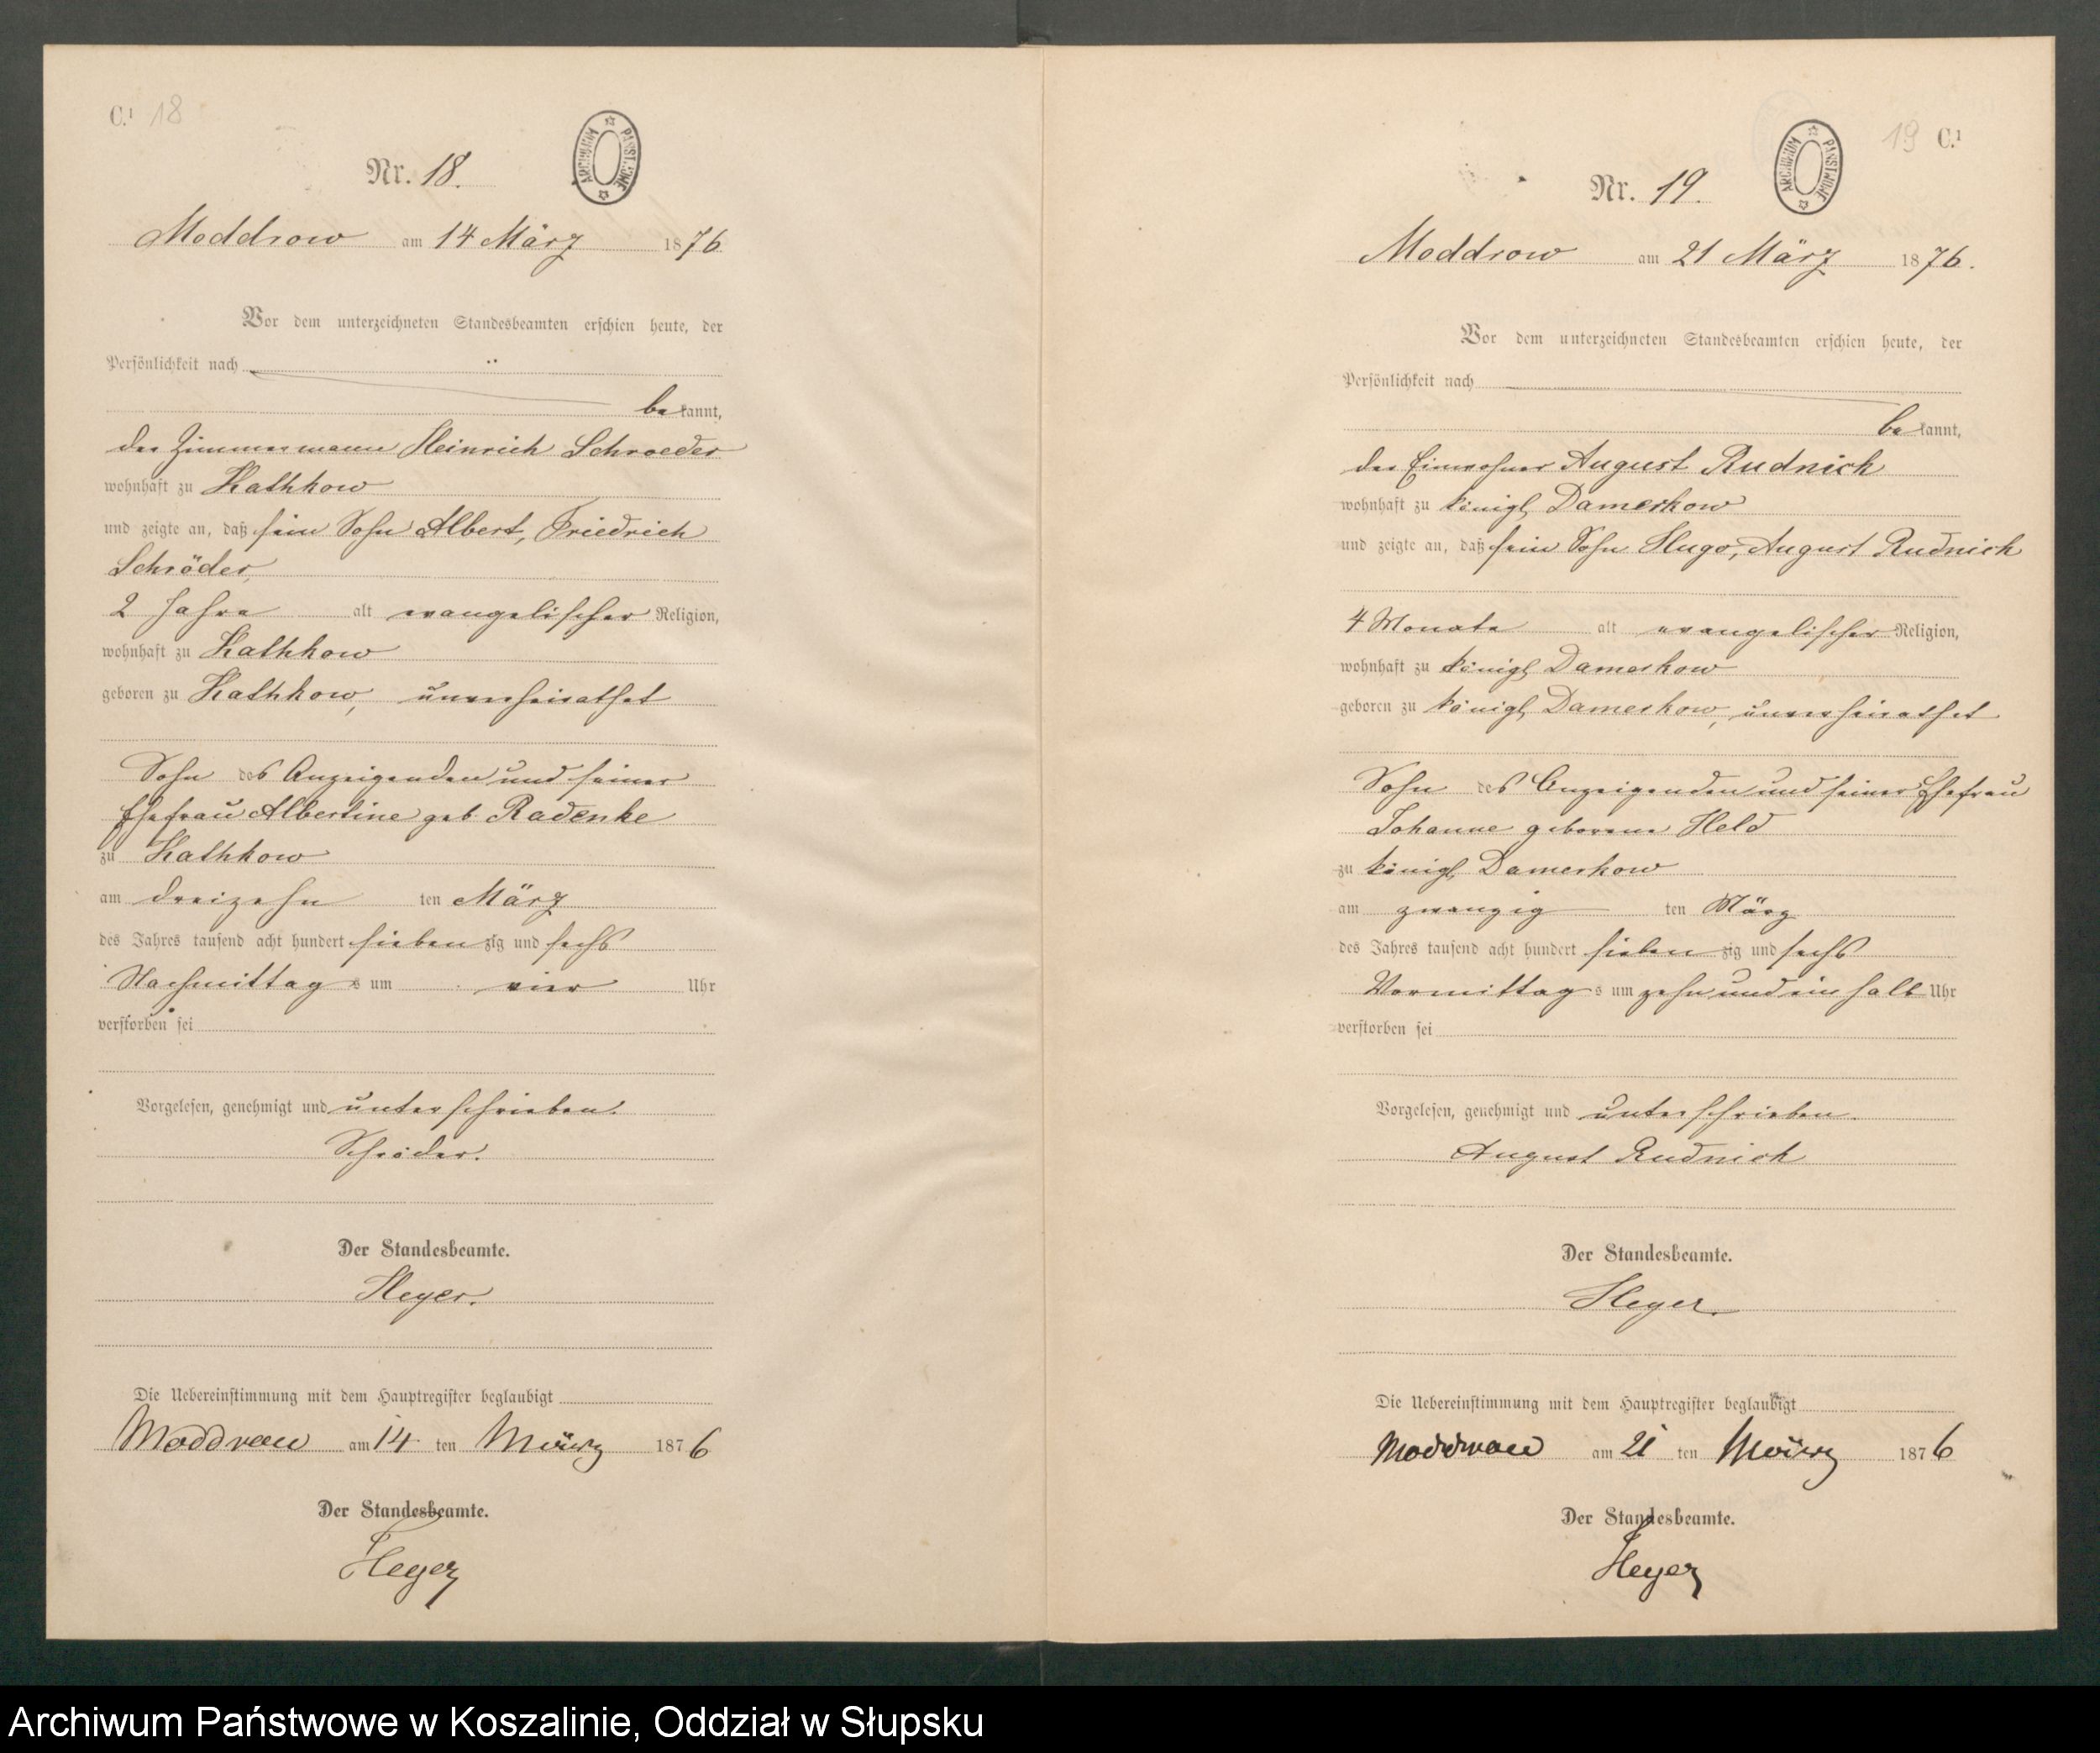 C.¹ 18
ARCHIWUM PAŃSTWOWE
Nr. 18.
Moddrow am 14 März 1876
Vor dem unterzeichneten Standesbeamten erschien heute, der
Persönlichkeit nach
bekannt,
der Zimmermann Heinrich Schroeder
wohnhaft zu Kathkow
und zeigte an, daß sein Sohn Albert, Friedrich
Schröder,
2 Jahre alt evangelischer Religion,
wohnhaft zu Kathkow
geboren zu Kathkow, unverheirathet
Sohn des Anzeigenden und seiner
Ehefrau Albertine geb. Radenke
zu Kathkow
am dreizehn ten März
des Jahres tausend acht hundert siebenzig und sechs
Nachmittags um vier Uhr
verstorben sei
Vorgelesen, genehmigt und unterschrieben.
Schröder.
Der Standesbeamte.
Heyer.
Die Uebereinstimmung mit dem Hauptregister beglaubigt
Moddrow am 14 ten März 1876
Der Standesbeamte.
Heyer
19 C.¹
ARCHIWUM PAŃSTWOWE
Nr. 19.
Moddrow am 21 März 1876.
Vor dem unterzeichneten Standesbeamten erschien heute, der
Persönlichkeit nach
bekannt,
der Einwohner August Rudnick
wohnhaft zu königl. Damerkow
und zeigte an, daß sein Sohn Hugo, August Rudnick
4 Monate alt evangelischer Religion,
wohnhaft zu königl. Damerkow
geboren zu königl. Damerkow, unverheirathet
Sohn des Anzeigenden und seiner Ehefrau
Johanne geborene Held
zu königl. Damerkow
am zwanzig ten März
des Jahres tausend acht hundert siebenzig und sechs
Vormittags um zehn und ein halb Uhr
verstorben sei
Vorgelesen, genehmigt und unterschrieben.
August Rudnick
Der Standesbeamte.
Heyer.
Die Uebereinstimmung mit dem Hauptregister beglaubigt
Moddrow am 21 ten März 1876
Der Standesbeamte.
Heyer
Archiwum Państwowe w Koszalinie, Oddział w Słupsku